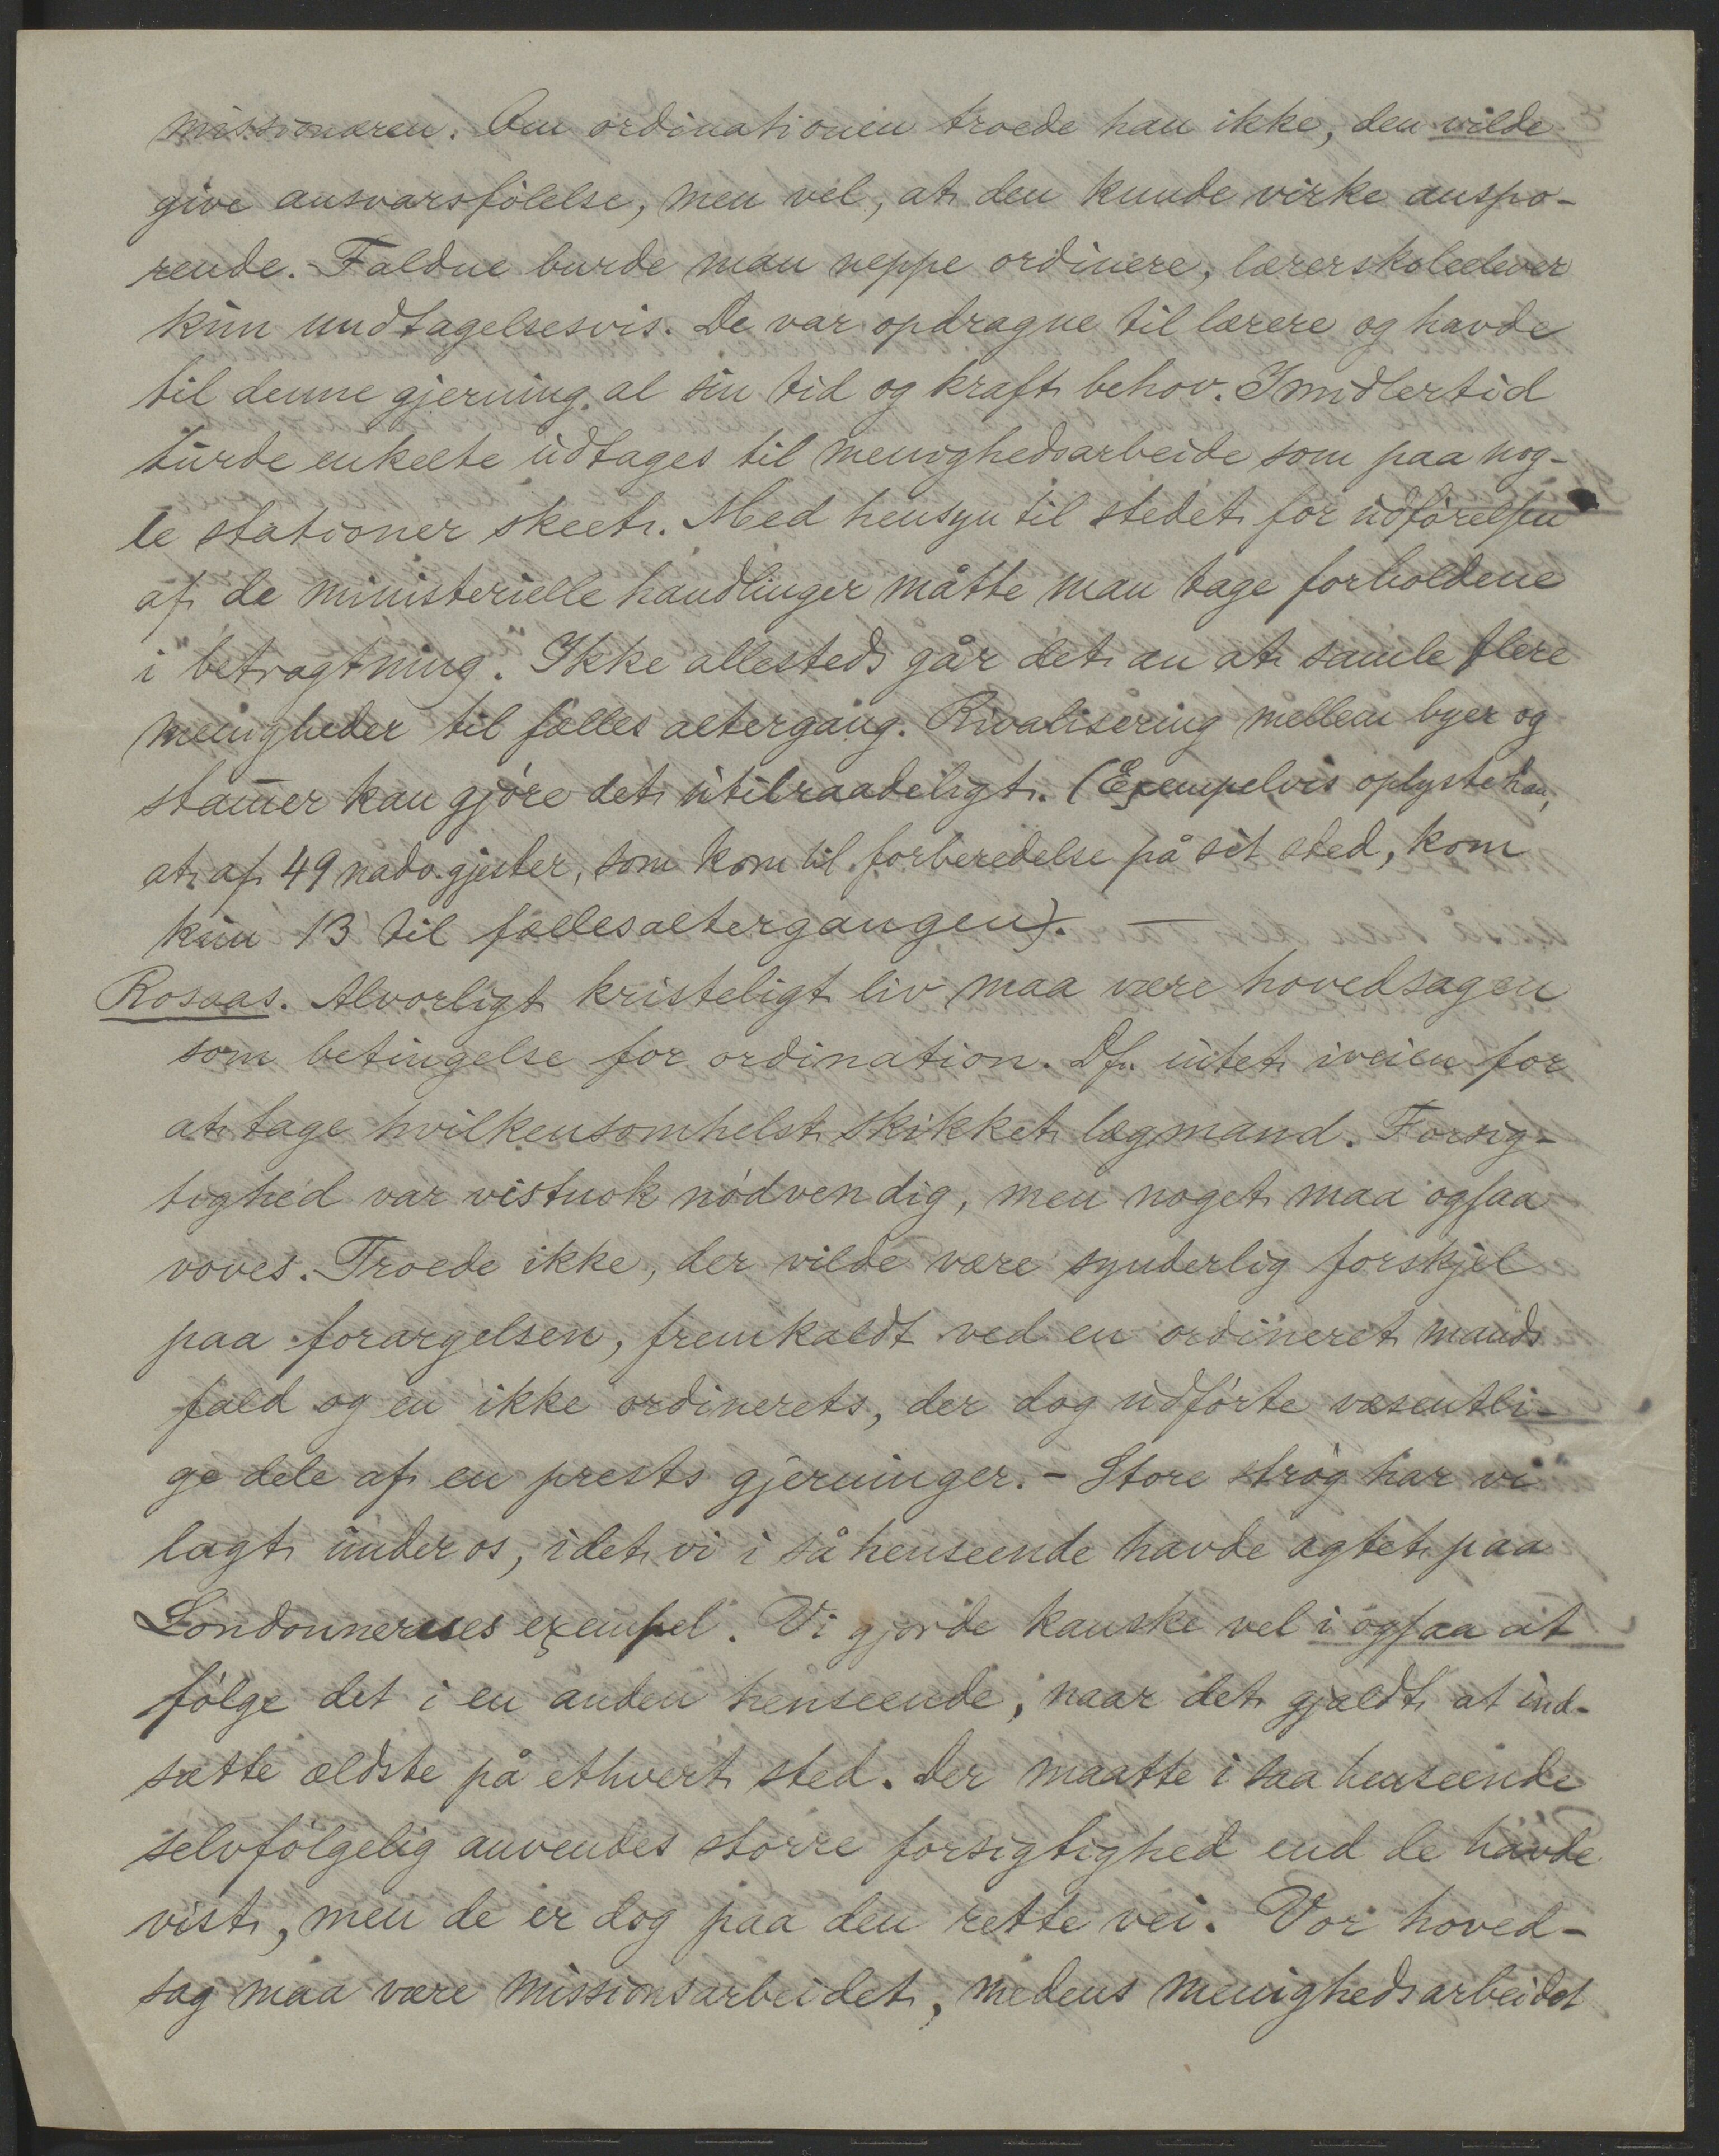 missionæren. Om ordinationen troede han ikke, den vilde
give ansvarsfölelse, men vel, at den kunde virke anspo-
rende. Faldne burde man neppe ordinere, lærerskoleelever
kun undtagelsesvis. De var opdragne til lærere og havde
til denne gjerning al sin tid og kraft behov. Imidlertid
turde enkelte udtages til menighedsarbeide som paa nog-
le stationer skeet. Med hensyn til stedet for udförelsen
af de ministerielle handlinger måtte man tage forholdene
i betragtning. Ikke allesteds går det an at samle flere
menigheder til fælles altergang. Rivalisering mellem byer og
stam̄er kan gjöre det utilraadeligt. (Exempelvis oplyste han,
at af 49 nadv.gjester, som kom til forberedelse på sit sted, kom
kun 13 til fællesaltergangen). —
Rosaas. Alvorligt kristeligt liv maa være hovedsagen
som betingelse for ordination. Df. intet iveien for
at tage hvilkensomhelst skikket lægmand. Forsig-
tighed var vistnok nödvendig, men noget maa ogsaa
voves. Troede ikke, der vilde være synderlig forskjel
paa forargelsen, fremkaldt ved en ordineret mands
fald og en ikke ordinerets, der dog udförte væsentli-
ge dele af en prests gjerninger. - Store strög har vi
lagt under os, idet vi i så henseende havde agtet paa
Londonnernes exempel. Vi gjorde kanske vel i ogsaa at
fölge det i en anden henseende, naar det gjældt at ind-
sætte ældste på ethvert sted. Der maatte i saa henseende
selvfölgelig anvendes större forsigtighed end de havde
vist, men de er dog paa den rette vei. Vor hoved-
sag maa være missionsarbeidet, medens menighedsarbeidet